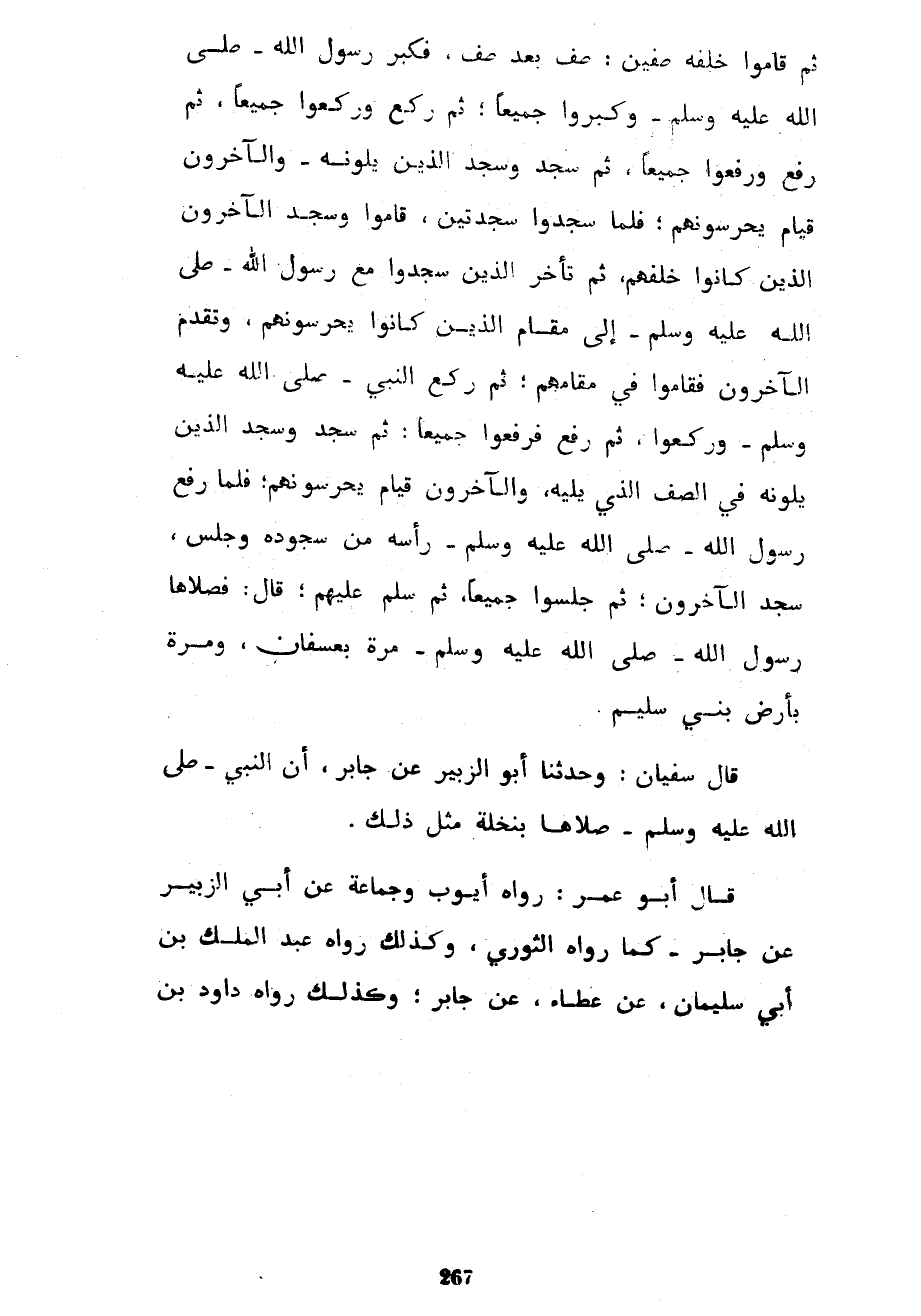 ثم قاموا خلفه صفين : صف بعد صف ، فكبر رسول الله ـ صلى
الله عليه وسلم ـ وكبروا جميعاً ؛ ثم ركع وركعوا جميعاً ، ثم
رفع ورفعوا جميعاً ، ثم سجد وسجد الذين يلونه ـ والآخرون
قيام يحرسونهم ؛ فلما سجدوا سجدتين ، قاموا وسجد الآخرون
الذين كانوا خلفهم، ثم تأخر الذين سجدوا مع رسول الله ـ صلى
الله عليه وسلم ـ إلى مقام الذين كانوا يحرسونهم ، وتقدم
الآخرون فقاموا في مقامهم ؛ ثم ركع النبي ـ صلى الله عليه
وسلم ـ وركعوا ، ثم رفع فرفعوا جميعاً : ثم سجد وسجد الذين
يلونه في الصف الذي يليه، والآخرون قيام يحرسونهم؛ فلما رفع
رسول الله ـ صلى الله عليه وسلم ـ رأسه من سجوده وجلس ،
سجد الآخرون ؛ ثم جلسوا جميعاً، ثم سلم عليهم ؛ قال: فصلاها
رسول الله ـ صلى الله عليه وسلم ـ مرة بعسفان ، ومرة
بأرض بني سليم .
قال سفيان : وحدثنا أبو الزبير عن جابر ، أن النبي ـ صلى
الله عليه وسلم ـ صلاها بنخلة مثل ذلك .
قال أبو عمر : رواه أيوب وجماعة عن أبي الزبير
عن جابر ـ كما رواه الثوري ، وكذلك رواه عبد الملك بن
أبي سليمان ، عن عطاء ، عن جابر ؛ وكذلك رواه داود بن
267